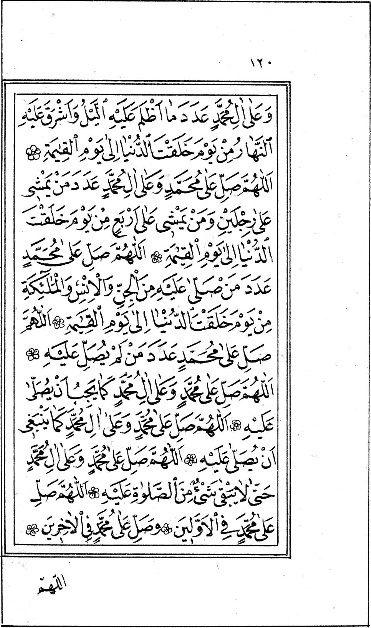 ١٢٠
وَعَلٰى اٰلِ مُحَمَّدٍ عَدَدَ مَا اَظْلَمَ عَلَيْهِ الَّيْلُ وَاَشْرَقَ عَلَيْهِ
النَّهَارُ مِنْ يَوْمِ خَلَقْتَ الدُّنْيَا اِلٰى يَوْمِ الْقِيٰمَةِ ۞
اَللّٰهُمَّ صَلِّ عَلٰى مُحَمَّدٍ وَعَلٰى اٰلِ مُحَمَّدٍ عَدَدَ مَنْ يَمْشِىْ
عَلٰى رِجْلَيْنِ وَمَنْ يَمْشِىْ عَلٰى اَرْبَعٍ مِنْ يَوْمِ خَلَقْتَ
الدُّنْيَا اِلٰى يَوْمِ الْقِيٰمَةِ ۞ اَللّٰهُمَّ صَلِّ عَلٰى مُحَمَّدٍ
عَدَدَ مَنْ صَلّٰى عَلَيْهِ مِنَ الْجِنِّ وَالْاِنْسِ وَالْمَلٰٓئِكَةِ
مِنْ يَوْمِ خَلَقْتَ الدُّنْيَا اِلٰى يَوْمِ الْقِيٰمَةِ ۞ اَللّٰهُمَّ
صَلِّ عَلٰى مُحَمَّدٍ عَدَدَ مَنْ لَمْ يُصَلِّ عَلَيْهِ ۞
اَللّٰهُمَّ صَلِّ عَلٰى مُحَمَّدٍ وَعَلٰى اٰلِ مُحَمَّدٍ كَمَا يَجِبُ اَنْ يُصَلّٰى
عَلَيْهِ ۞ اَللّٰهُمَّ صَلِّ عَلٰى مُحَمَّدٍ وَعَلٰى اٰلِ مُحَمَّدٍ كَمَا يَنْبَغِىْ
اَنْ يُصَلّٰى عَلَيْهِ ۞ اَللّٰهُمَّ صَلِّ عَلٰى مُحَمَّدٍ وَعَلٰى اٰلِ مُحَمَّدٍ
حَتّٰى لَا يَبْقٰى شَىْءٌ مِنَ الصَّلٰوةِ عَلَيْهِ ۞ اَللّٰهُمَّ صَلِّ
عَلٰى مُحَمَّدٍ فِى الْاَوَّلِيْنَ ۞ وَصَلِّ عَلٰى مُحَمَّدٍ فِى الْاٰخِرِيْنَ ۞
اللّٰهمّ